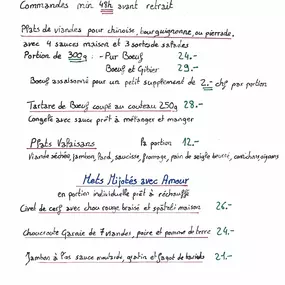 Commandes min 48h avant retrait
Plats de viandes pour chinoise, bourguignonne, ou pierrade,
avec 4 sauces maison et 3 sortes de salades
Portion de 300g : - Pur Bœuf 24.-
Bœuf et Gibier 29.-
Bœuf assaisonné pour un petit supplement de 2.- chf par portion
Tartare de Bœuf coupé au couteau 250g 28.-
Congelé avec sauce prêt à mélanger et manger
Plats Valaisans la portion 12.-
Viande séchée, jambon, lard, saucisse, fromage, pain de seigle beurré, cornichons oignons
Mets Mijotés avec Amour
en portion individuelle prêt à réchauffé
Civet de cerf avec chou rouge braisé et spätzli maison 26.-
Choucroute Garnie de 7 viandes, poire et pomme de terre 24.-
Jambon à l'os sauce moutarde, gratin et fagot de haricots 21.-